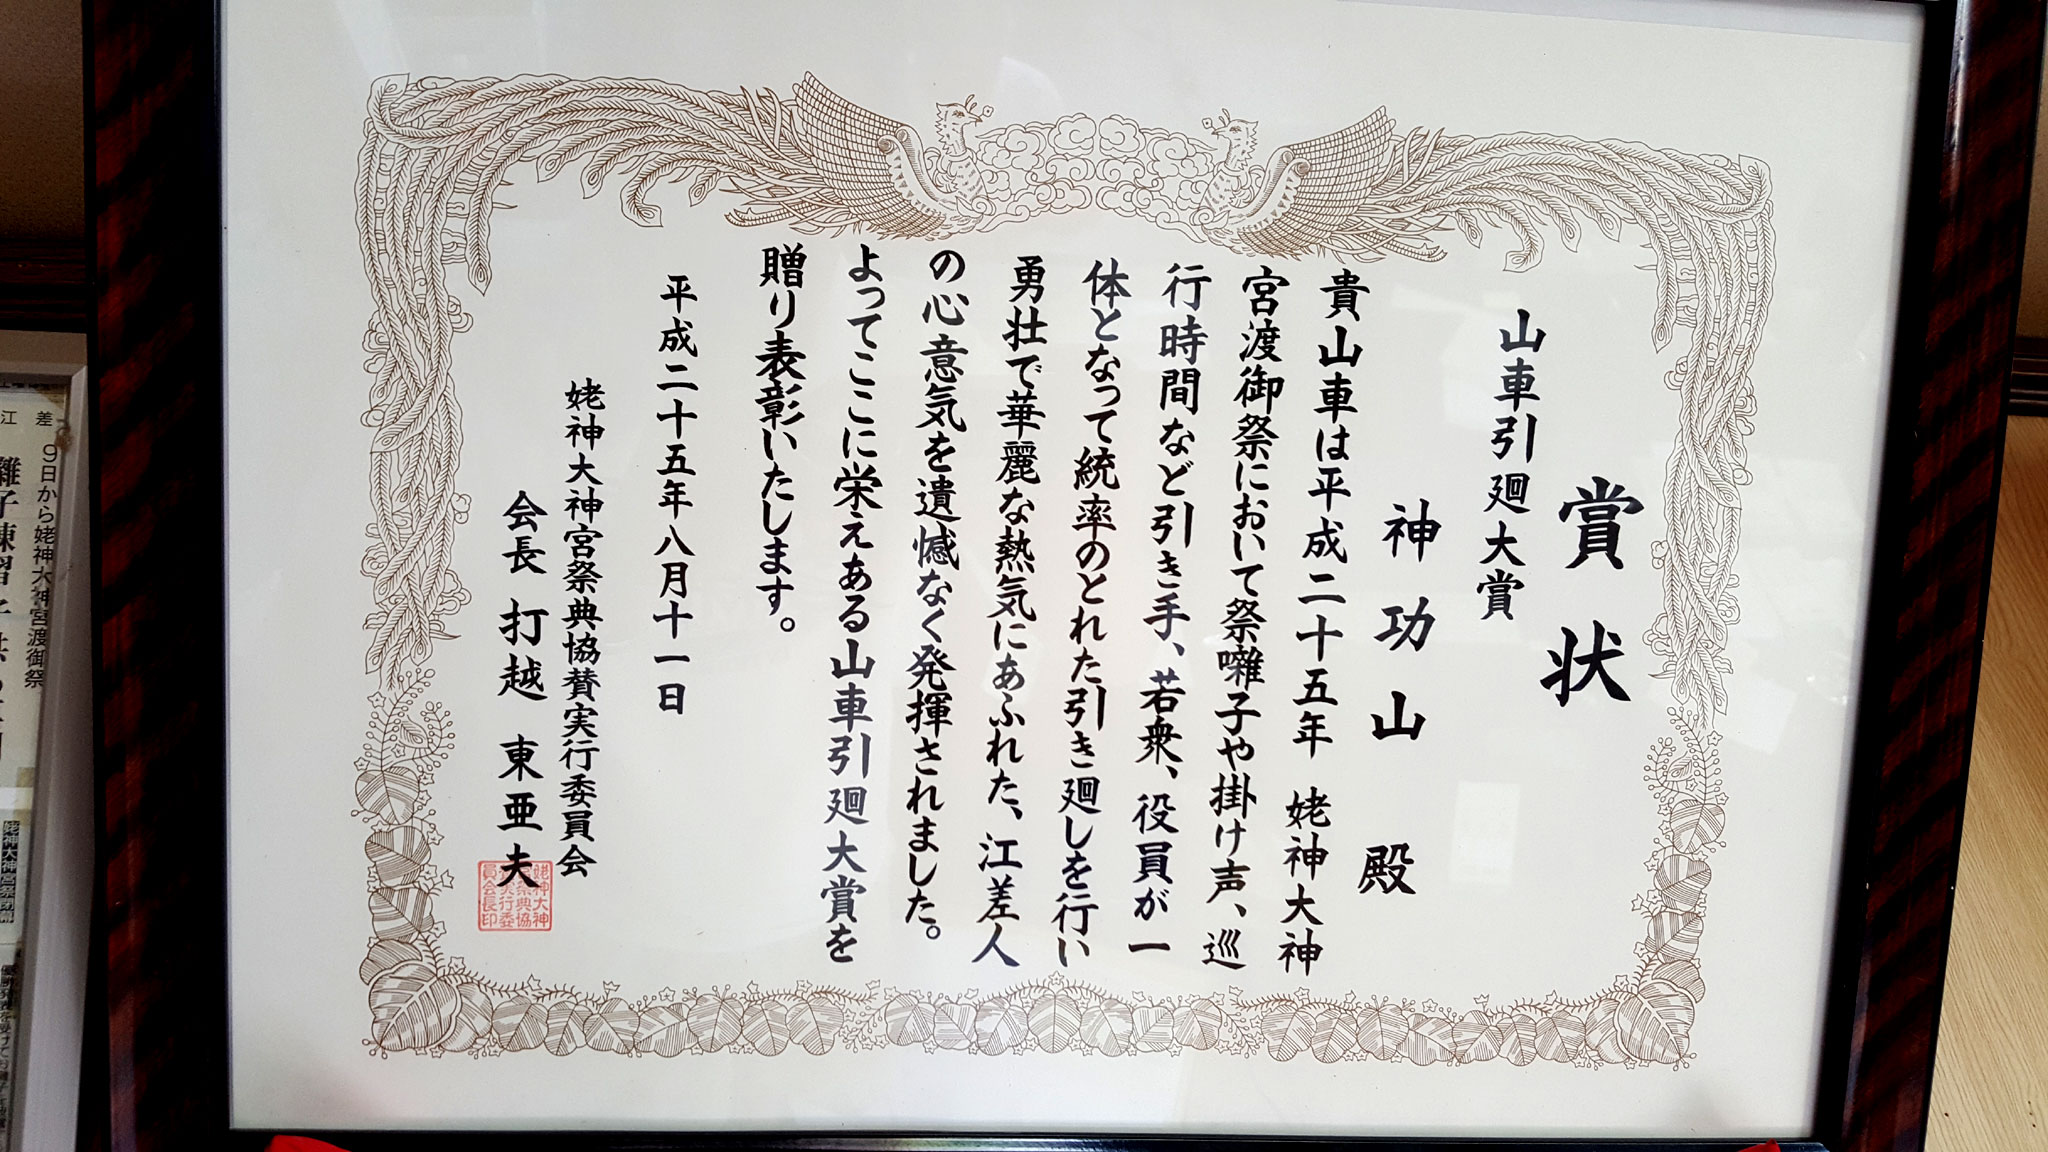 賞状
山車引廻大賞
神功山 殿
貴山車は平成二十五年 姥神大神
宮渡御祭において祭囃子や掛け声、巡
行時間など引き手、若衆、役員が一
体となって統率のとれた引き廻しを行い
勇壮で華麗な熱気にあふれた、江差人
の心意気を遺憾なく発揮されました。
よってここに栄えある山車引廻大賞を
贈り表彰いたします。
平成二十五年八月十一日
姥神大神宮祭典協賛実行委員会
会長 打越 東亜夫
姥神大神
員会長印
江差
9日から姥神大神宮渡御祭
姥神大神宮祭閉幕